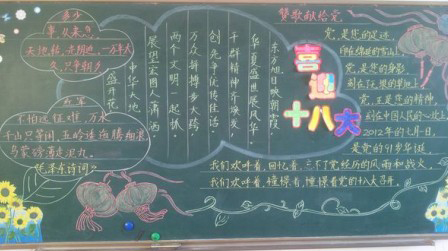 春少
事从来多
天地转,光阴迫,一万年太
久,只争朝夕
长军
不怕远征难,万水
千山只等闲,五岭逶迤腾细浪,
乌蒙磅礴走泥丸。
毛泽东诗词
东方旭日映朝霞
华夏盛世展风华
千群精神齐焕发
创先争优传佳话
万众拼搏步大跨
两个文明一起抓
展望宏图人潇洒
中华大地
盛开花
喜迎
十八大
赞歌献给党
党,是您的足迹
党,是您的身影
党,正是您的精神
刻在中国人民的心地上
2012年的七月一日,
是党的91岁华诞
我们欢呼着,回忆着,忘不了党经历的风雨和战火。
我们欢呼着,憧憬着,憧憬着党的十八大召开。